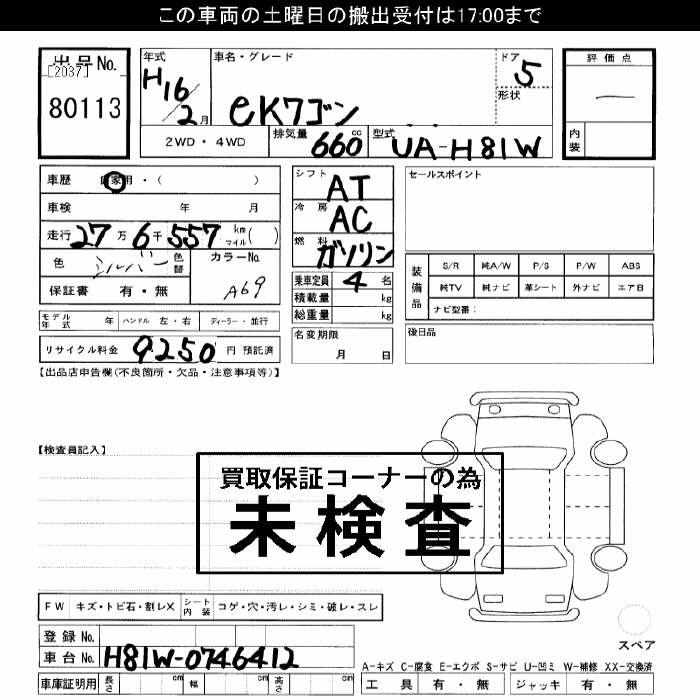 この車両の土曜日の搬出受付は17:00まで
出品No. [2037] 80113
年式 H16/2月
車名・グレード eKワゴン
ドア 5
形状
評価点 ―
内装
2WD・4WD 排気量 660cc 型式 UA-H81W
車歴 自家用・( )
車検 年 月
走行 27万6千557 km マイル( )
色 シルバー 色替 カラーNo. A69
保証書 有・無
モデル年式 年 ハンドル 左・右 ディーラー・並行
リサイクル料金 9250 円 預託済
シフト AT
冷房 AC
燃料 ガソリン
乗車定員 4 名
積載量 kg
総重量 kg
名変期限 月 日
セールスポイント
装備品 S/R 純A/W P/S P/W ABS
純TV 純ナビ 革シート 外ナビ エアB
ナビ型番:
後日品
【出品店申告欄(不良箇所・欠品・注意事項等)】
【検査員記入】
買取保証コーナーの為
未検査
FW キズ・トビ石・割レX シート内装 コゲ・穴・汚レ・シミ・破レ・スレ
登録No.
車台No. H81W-0746412
車庫証明用 長さ cm 幅 cm 高さ cm
スペア
A-キズ C-腐食 E-エクボ S-サビ U-凹ミ W-補修 XX-交換済
工具 有・無 ジャッキ 有・無